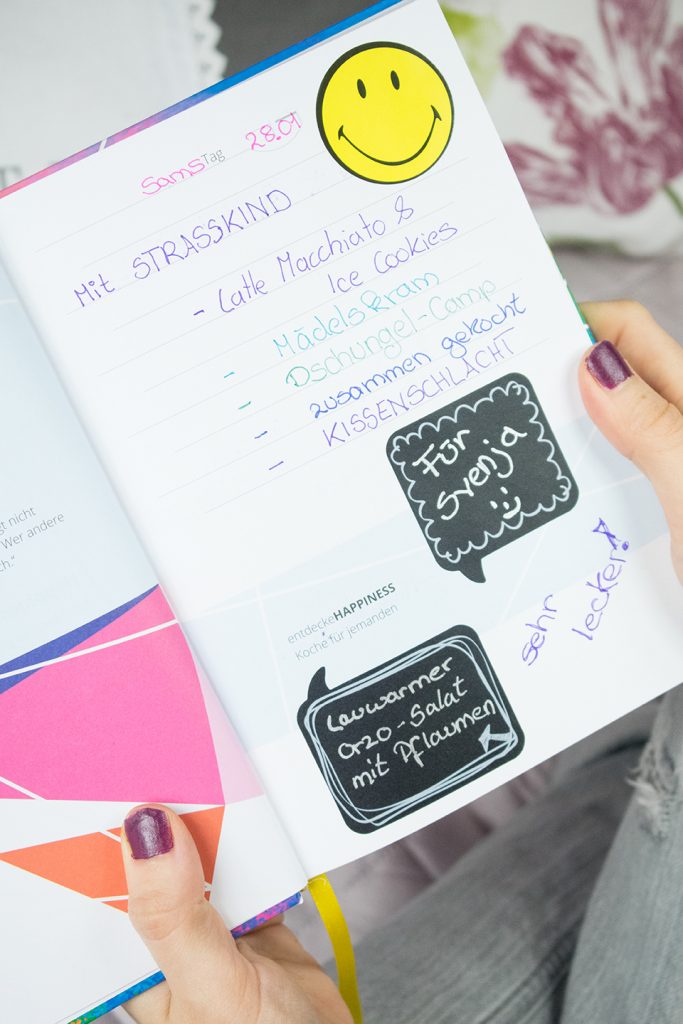 SamsTag 28.01
Mit STRASSKIND
- Latte Macchiato &
Ice Cookies
- Mädelskram
- Dschungel-Camp
- zusammen gekocht
- KISSENSCHLACHT
Für
Svenja
entdeckeHAPPINESS
Koche für jemanden
sehr
lecker!
Lauwarmer
Orzo-Salat
mit Pflaumen
gt nicht
Wer andere
ch."